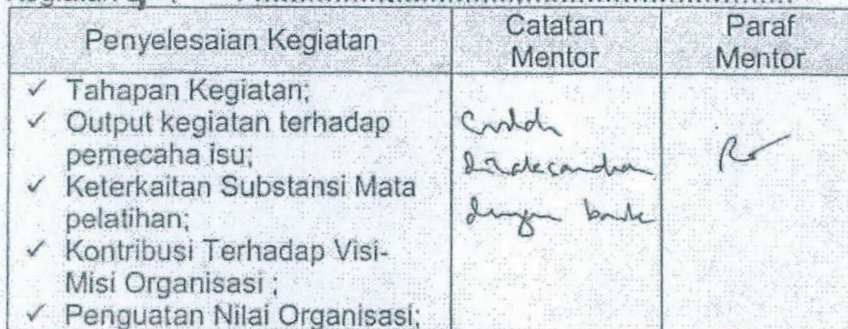 Kegiatan 4 (
Penyelesaian Kegiatan
Catatan
Mentor
Paraf
Mentor
✓ Tahapan Kegiatan;
✓ Output kegiatan terhadap
pemecaha isu;
✓ Keterkaitan Substansi Mata
pelatihan;
✓ Kontribusi Terhadap Visi-
Misi Organisasi ;
✓ Penguatan Nilai Organisasi;
Sudah
dilaksanakan
dengan baik